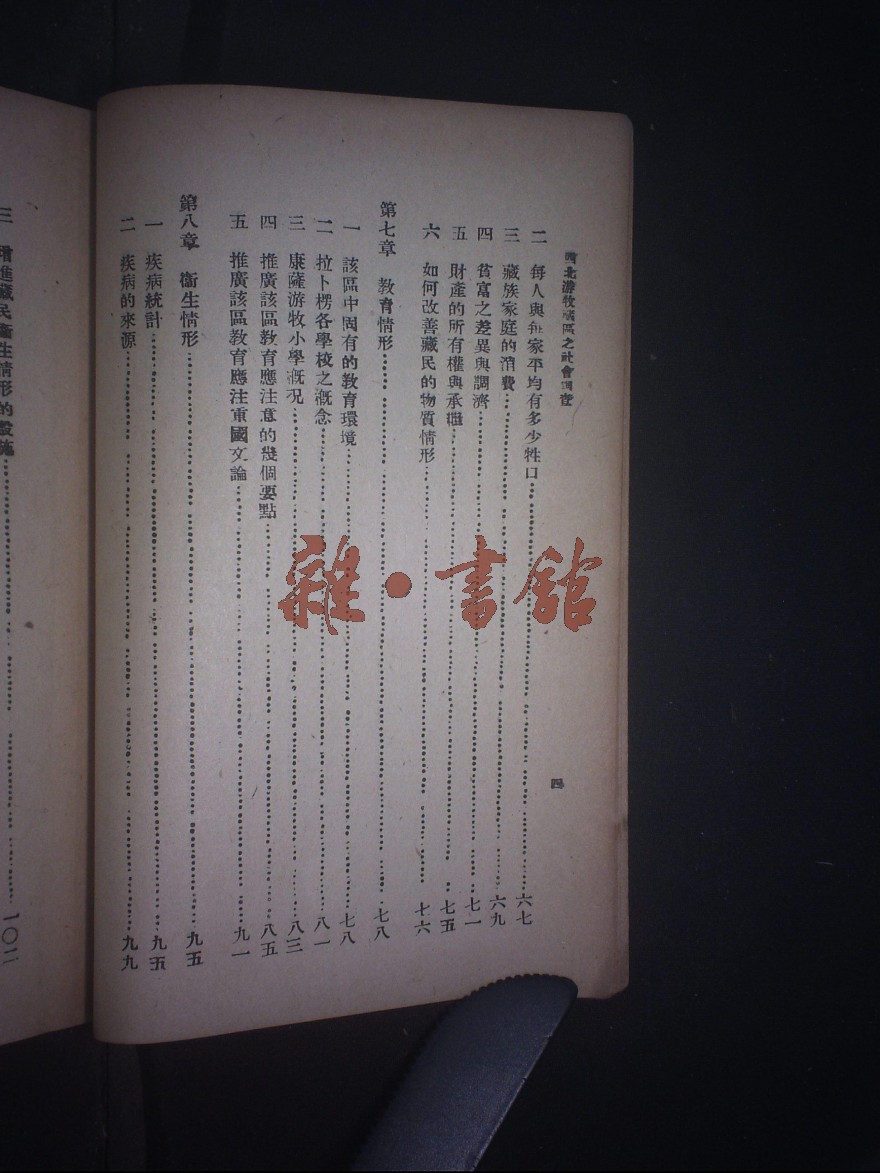 西北游牧藏區之社會調查
四
二 每人與每家平均有多少牲口 六七
三 藏族家庭的消費 六九
四 貧富之差異與調濟 七一
五 財產的所有權與承繼 七五
六 如何改善藏民的物質情形 十六
第七章 教育情形 七八
一 該區中固有的教育環境 七八
二 拉卜楞各學校之概念 八一
三 康薩游牧小學概況 八三
四 推廣該區教育應注意的幾個要點 八五
五 推廣該區教育應注重國文論 九一
第八章 衞生情形 九五
一 疾病統計 九五
二 疾病的來源 九九
三 增進藏民衞生情形的設施 一〇二
雜·書館